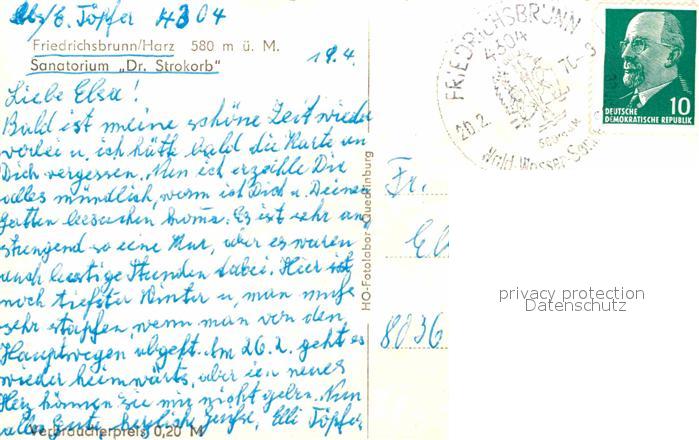 Abs. E. Töpfer 4304
Friedrichsbrunn/Harz 580 m ü. M.
Sanatorium „Dr. Strokorb"
19.4.
Liebe Elsa!
Bald ist meine schöne Zeit wieder
vorbei u. ich hätte bald die Karte an
Dich vergessen. Nun ich erzähle Dir
alles mündlich, wenn ich Dich u. Deinen
Gatten besuchen komme. Es ist sehr an-
strengend so eine Kur, aber es waren
auch lustige Stunden dabei. Hier ist
noch tiefster Winter u. man muß
sehr stapfen, wenn man von den
Hauptwegen abgeht. Am 26.2. geht es
wieder heimwärts, aber ein neues
Herz können sie mir nicht geben. Nun
alles Gute, herzliche Grüße, Elli Töpfer
Verbraucherpreis 0,20 M
HO-Fotolabor Quedlinburg
FRIEDRICHSBRUNN
4304
20.2. 70-8
580 m ü. M
Wald-Wasser-Sonne
10
DEUTSCHE
DEMOKRATISCHE REPUBLIK
Fr.
El
8036
privacy protection
Datenschutz